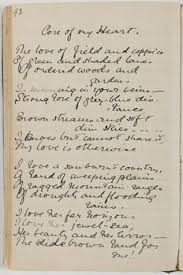 43
Core of my Heart.
The love of field and coppice
Of green and shaded lanes
Of ordered woods and
gardens
Is running in your veins —
Strong love of grey-blue dis
Brown streams and soft
dim skies
I know but cannot share it
My love is otherwise
I love a sunburnt country,
A land of sweeping plains,
Of ragged mountain ranges
Of droughts and flooding
rains.
I love her far horizons
I love her jewel-sea,
Her beauty and her terror —
The wide brown land for
me!